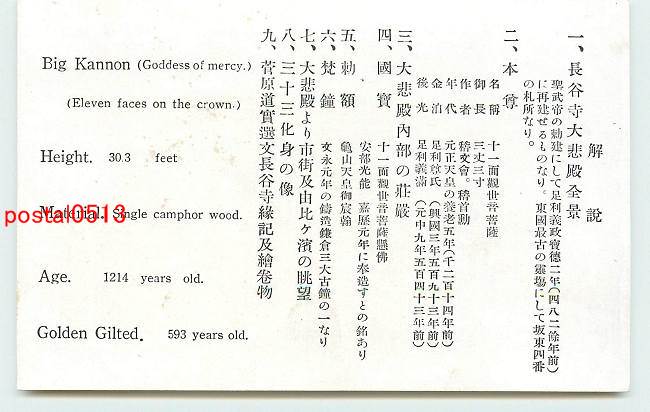 解説
一、長谷寺大悲殿全景
聖武帝の勅建にして足利義政寶德二年(四八二餘年前)
に再建せるものなり。東國最古の靈場にして坂東四番
の札所なり。
二、本尊
名稱 十一面觀世音菩薩
御長 三丈三寸
作者 稽文會。稽首勳
年代 元正天皇の養老五年(千二百十四年前)
金泊 足利尊氏(興國三年五百九十三年前)
後光 足利義滿(元中九年五百四十三年前)
三、大悲殿內部の莊嚴
四、國寶 十一面觀世音菩薩懸佛
安部光能 嘉曆元年に奉造すとの銘あり
五、勅額 龜山天皇御宸翰
六、梵鐘 文永元年の鑄造鎌倉三大古鐘の一なり
七、大悲殿より市街及由比ヶ濱の眺望
八、三十三化身の像
九、菅原道實選文長谷寺緣記及繪卷物
Big Kannon (Goddess of mercy.)
(Eleven faces on the crown.)
Height. 30.3 feet
Material. Single camphor wood.
Age. 1214 years old.
Golden Gilted. 593 years old.
postal0513